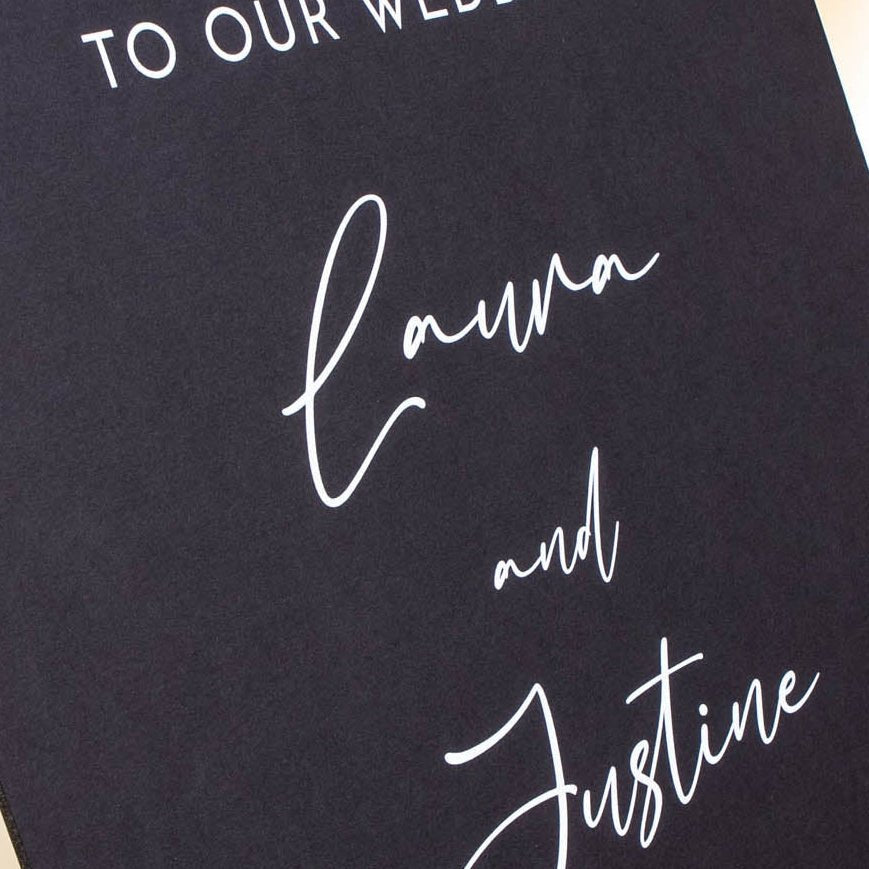 TO OUR WEDD
Laura
and
Justine